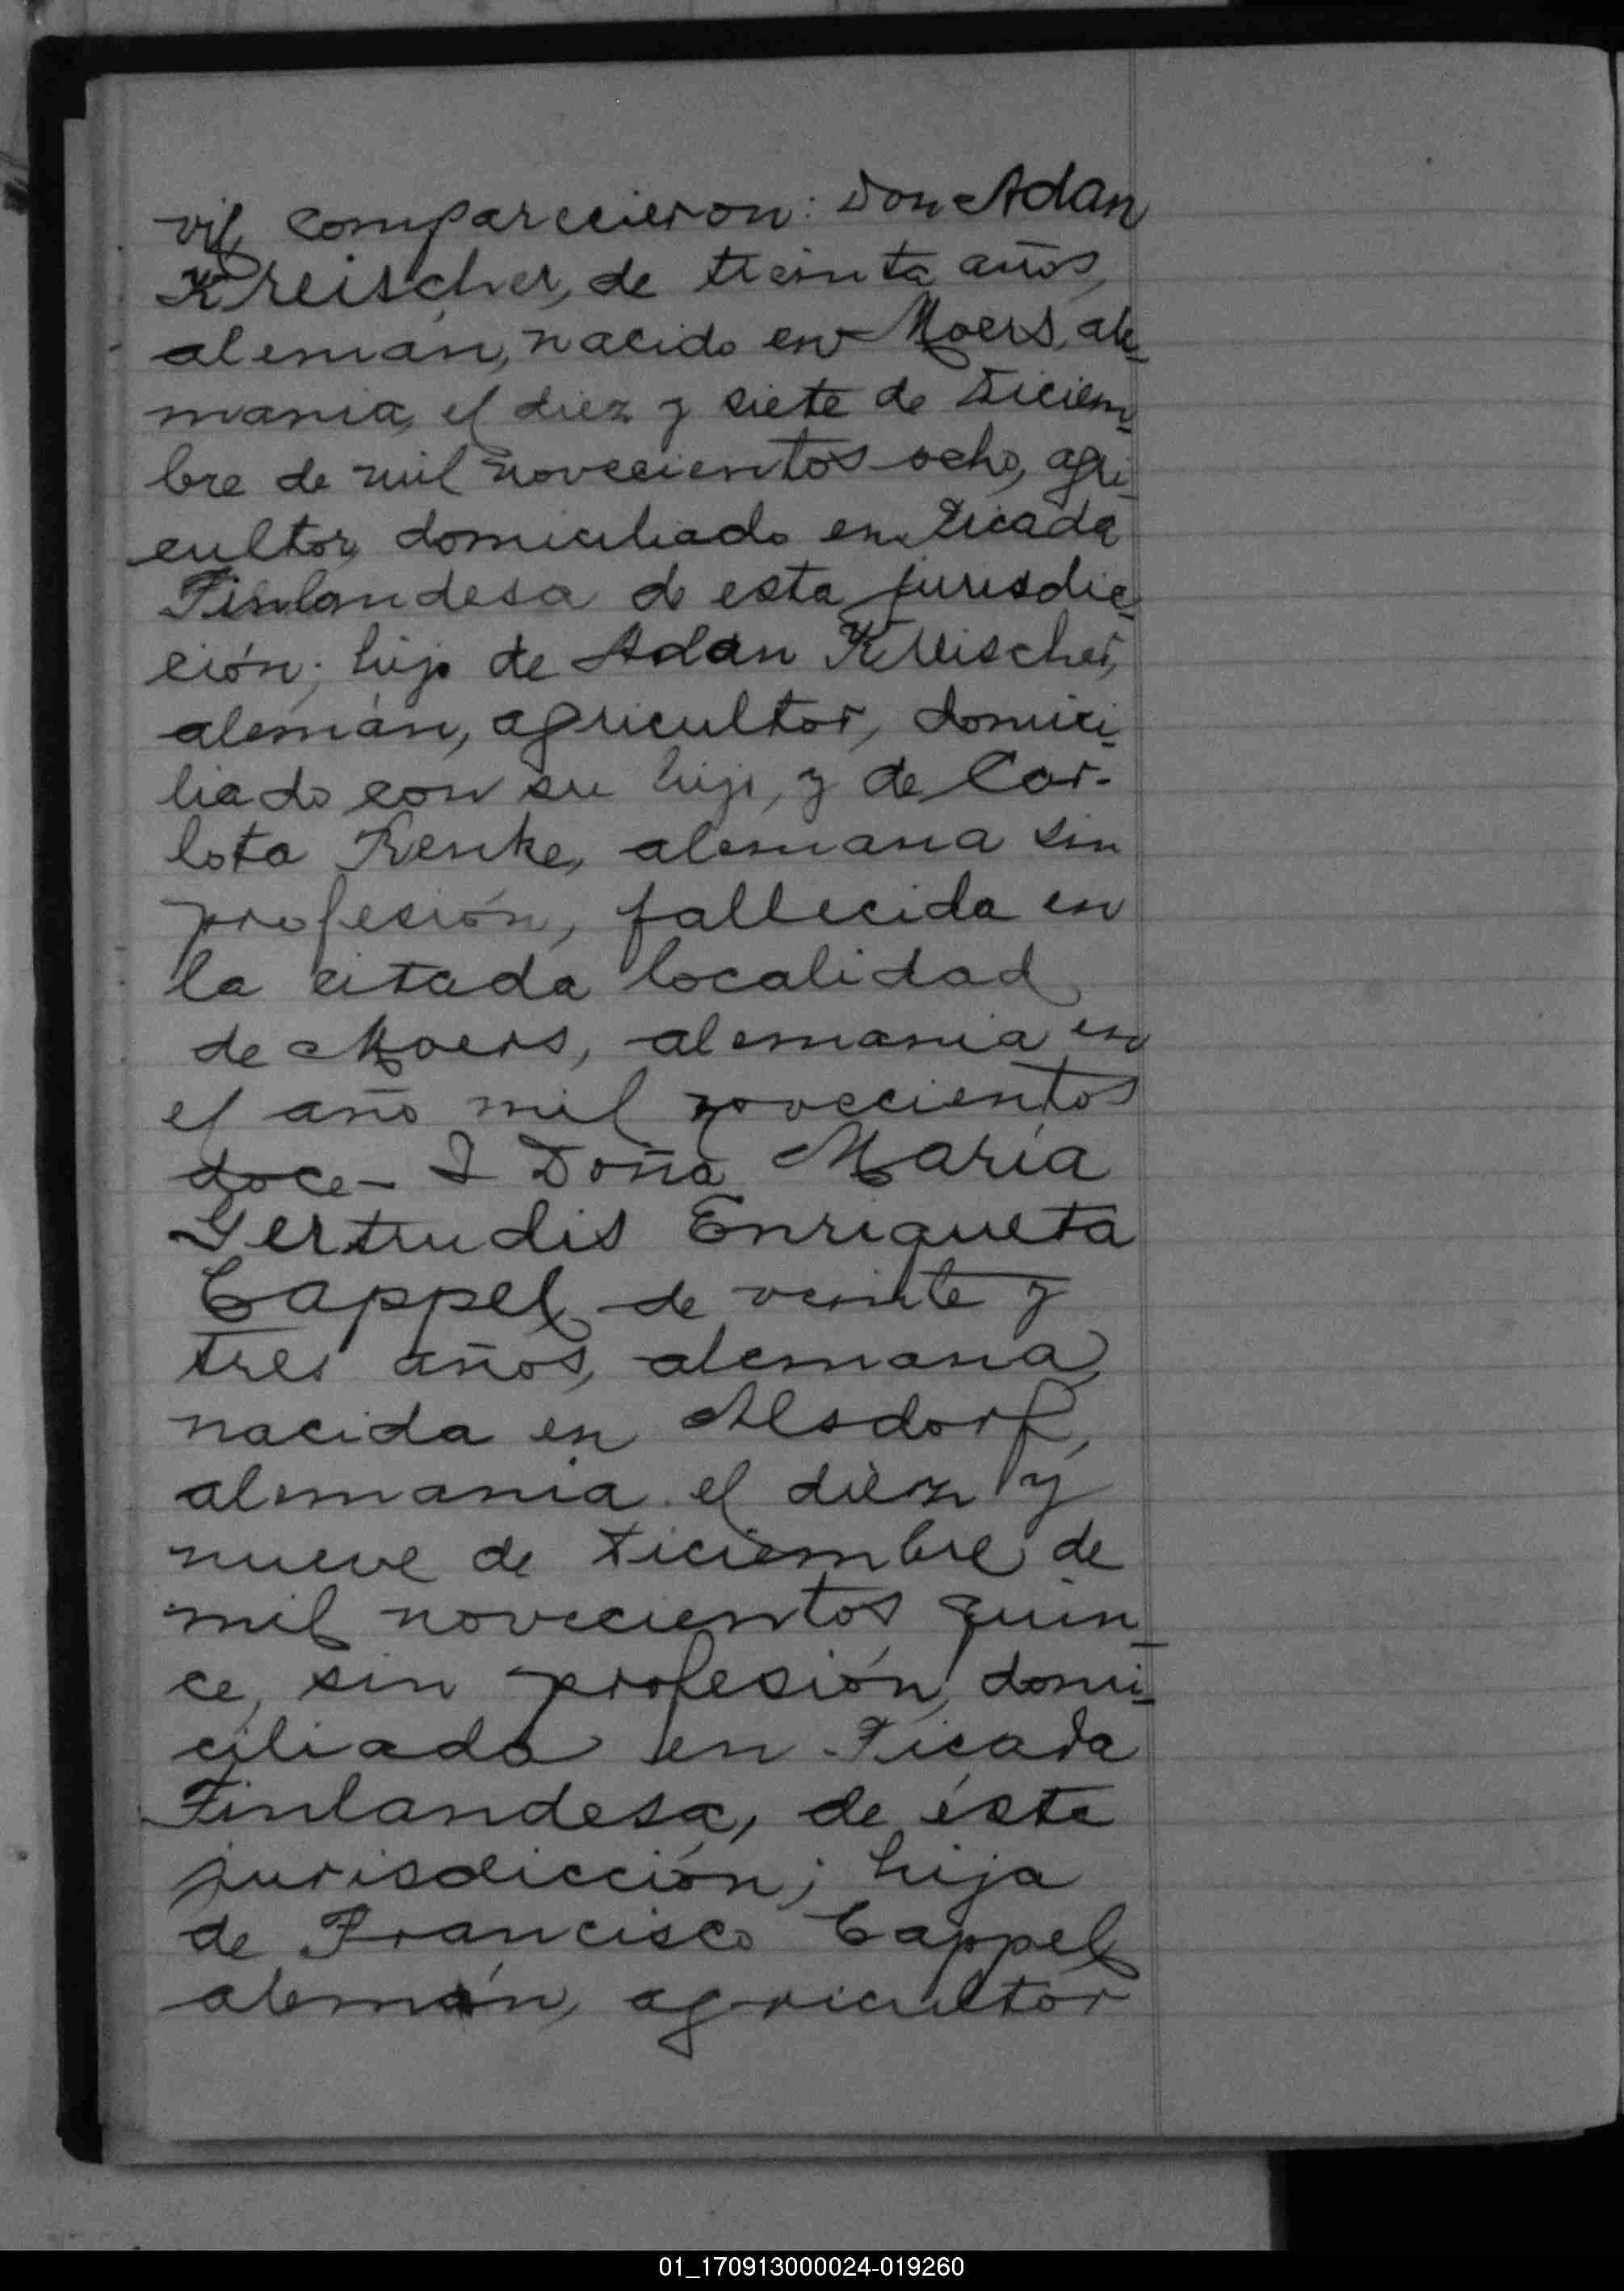 vil comparecieron: Don Adan
Kreischer, de treinta años,
alemán, nacido en Moers, ale-
mania, el diez y siete de Diciem-
bre de mil novecientos ocho, agri-
cultor, domiciliado en Picada
Finlandesa de esta jurisdic-
ción; hijo de Adan Kreischer,
alemán, agricultor, domici-
liado con su hijo, y de Car-
lota Renke, alemana sin
profesión, fallecida en
la citada localidad
de Moers, alemania en
el año mil novecientos
doce - I Doña María
Gertrudis Enriqueta
Cappel de veinte y
tres años, alemana,
nacida en Alsdorf,
alemania el diez y
nueve de Diciembre de
mil novecientos quin-
ce, sin profesión, domi-
ciliada en Picada
Finlandesa, de ésta
jurisdicción; hija
de Francisco Cappel
alemán, agricultor
01_170913000024-019260